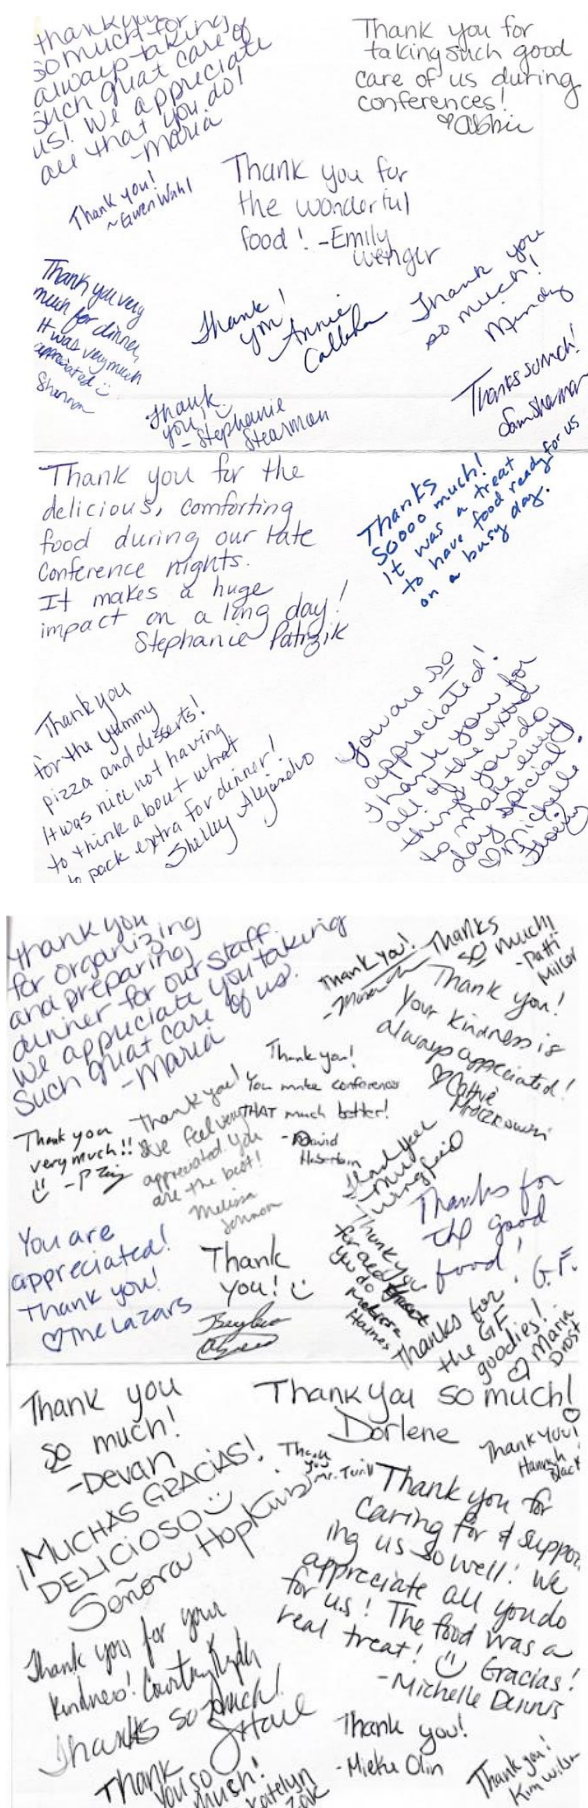 thank you
so much for
always taking
such great care of
us! We appreciate
all that you do!
-Maria
Thank you for
taking such good
care of us during
conferences!
♡Abbie
Thank you!
~Gwen Wahl
Thank you for
the wonderful
food! -Emily
Wenger
Thank you very
much for dinner,
It was very much
appreciated :)
Shannon
Thank
you!
Annie
Callahan
Thank you
so much!
Mindy
Thank
you! :)
-Stephanie
Stearman
Thanks so much!
Sam Sherman
Thank you for the
delicious, comforting
food during our late
conference nights.
It makes a huge
impact on a long day!
Stephanie
Thanks
soooo much!
It was a treat
to have food ready for us
on a busy day.
Thank you
for the yummy
pizza and desserts!
It was nice not having
to think about what
to pack extra for dinner!
Shelley Alejandro
You are so
appreciated!
Thank you for
all of the extra
things you do
to make every
day special!
♡Michelle
thank you
for organizing
and preparing
dinner for our staff.
We appreciate you taking
such great care of us.
-Maria
Thank you!
Thanks
so much!
-Patti
Miller
Thank you!
Your kindness is
always appreciated!
Thank you!
You make conferences
THAT much better!
-David
Thank you
very much!!
:)
Thank you!
We feel very
appreciated. You
are the best!
Melissa
Johnson
Thank you
Wingfield
You are
appreciated!
Thank you!
♡The Lazars
Thank
you! :)
Thank you
for all
you do
Haines
Thanks for
the good
food!
Thanks for
the GF
goodies!
♡ Maria
Drost
G.F.
Thank you
so much!
-Devan
Thank you so much!
Dorlene
Thank you!
Hannah
Black
¡MUCHAS GRACIAS!
DELICIOSO :)
Señora Hopkins
Thank
you
Thank you for
caring for & suppor
ing us so well! We
appreciate all you do
for us! The food was a
real treat! :) Gracias!
-Michelle Dennis
Thank you for your
kindness! Courtney
Thanks so much!
Thank you!
-Mieke Olin
Thank
you so
much!
Katelyn
Thank you!
Kim